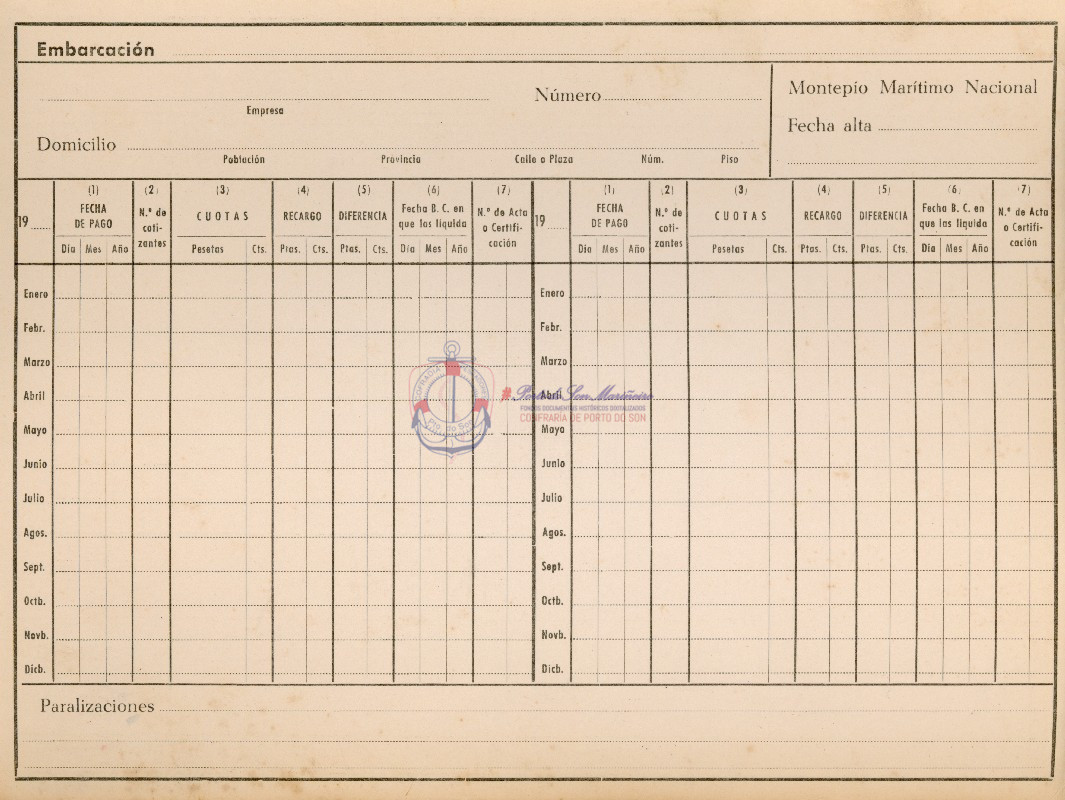 Embarcación
Número
Montepío Marítimo Nacional
Empresa
Fecha alta
Domicilio
Población Provincia Calle o Plaza Núm. Piso
19 (1) FECHA DE PAGO (2) N.º de coti- zantes (3) CUOTAS (4) RECARGO (5) DIFERENCIA (6) Fecha B. C. en que las liquida (7) N.º de Acta o Certifi- cación
Día Mes Año Pesetas Cts. Ptas. Cts. Ptas. Cts. Día Mes Año
19 (1) FECHA DE PAGO (2) N.º de coti- zantes (3) CUOTAS (4) RECARGO (5) DIFERENCIA (6) Fecha B. C. en que las liquida (7) N.º de Acta o Certifi- cación
Día Mes Año Pesetas Cts. Ptas. Cts. Ptas. Cts. Día Mes Año
Enero Enero
Febr. Febr.
Marzo Marzo
Abril Abril
Mayo Mayo
Junio Junio
Julio Julio
Agos. Agos.
Sept. Sept.
Octb. Octb.
Novb. Novb.
Dicb. Dicb.
Pto. do Son
#Porto do Son Mariñeiro
FONDOS DOCUMENTAIS HISTÓRICOS DIXITALIZADOS
CONFRARÍA DE PORTO DO SON
Paralizaciones